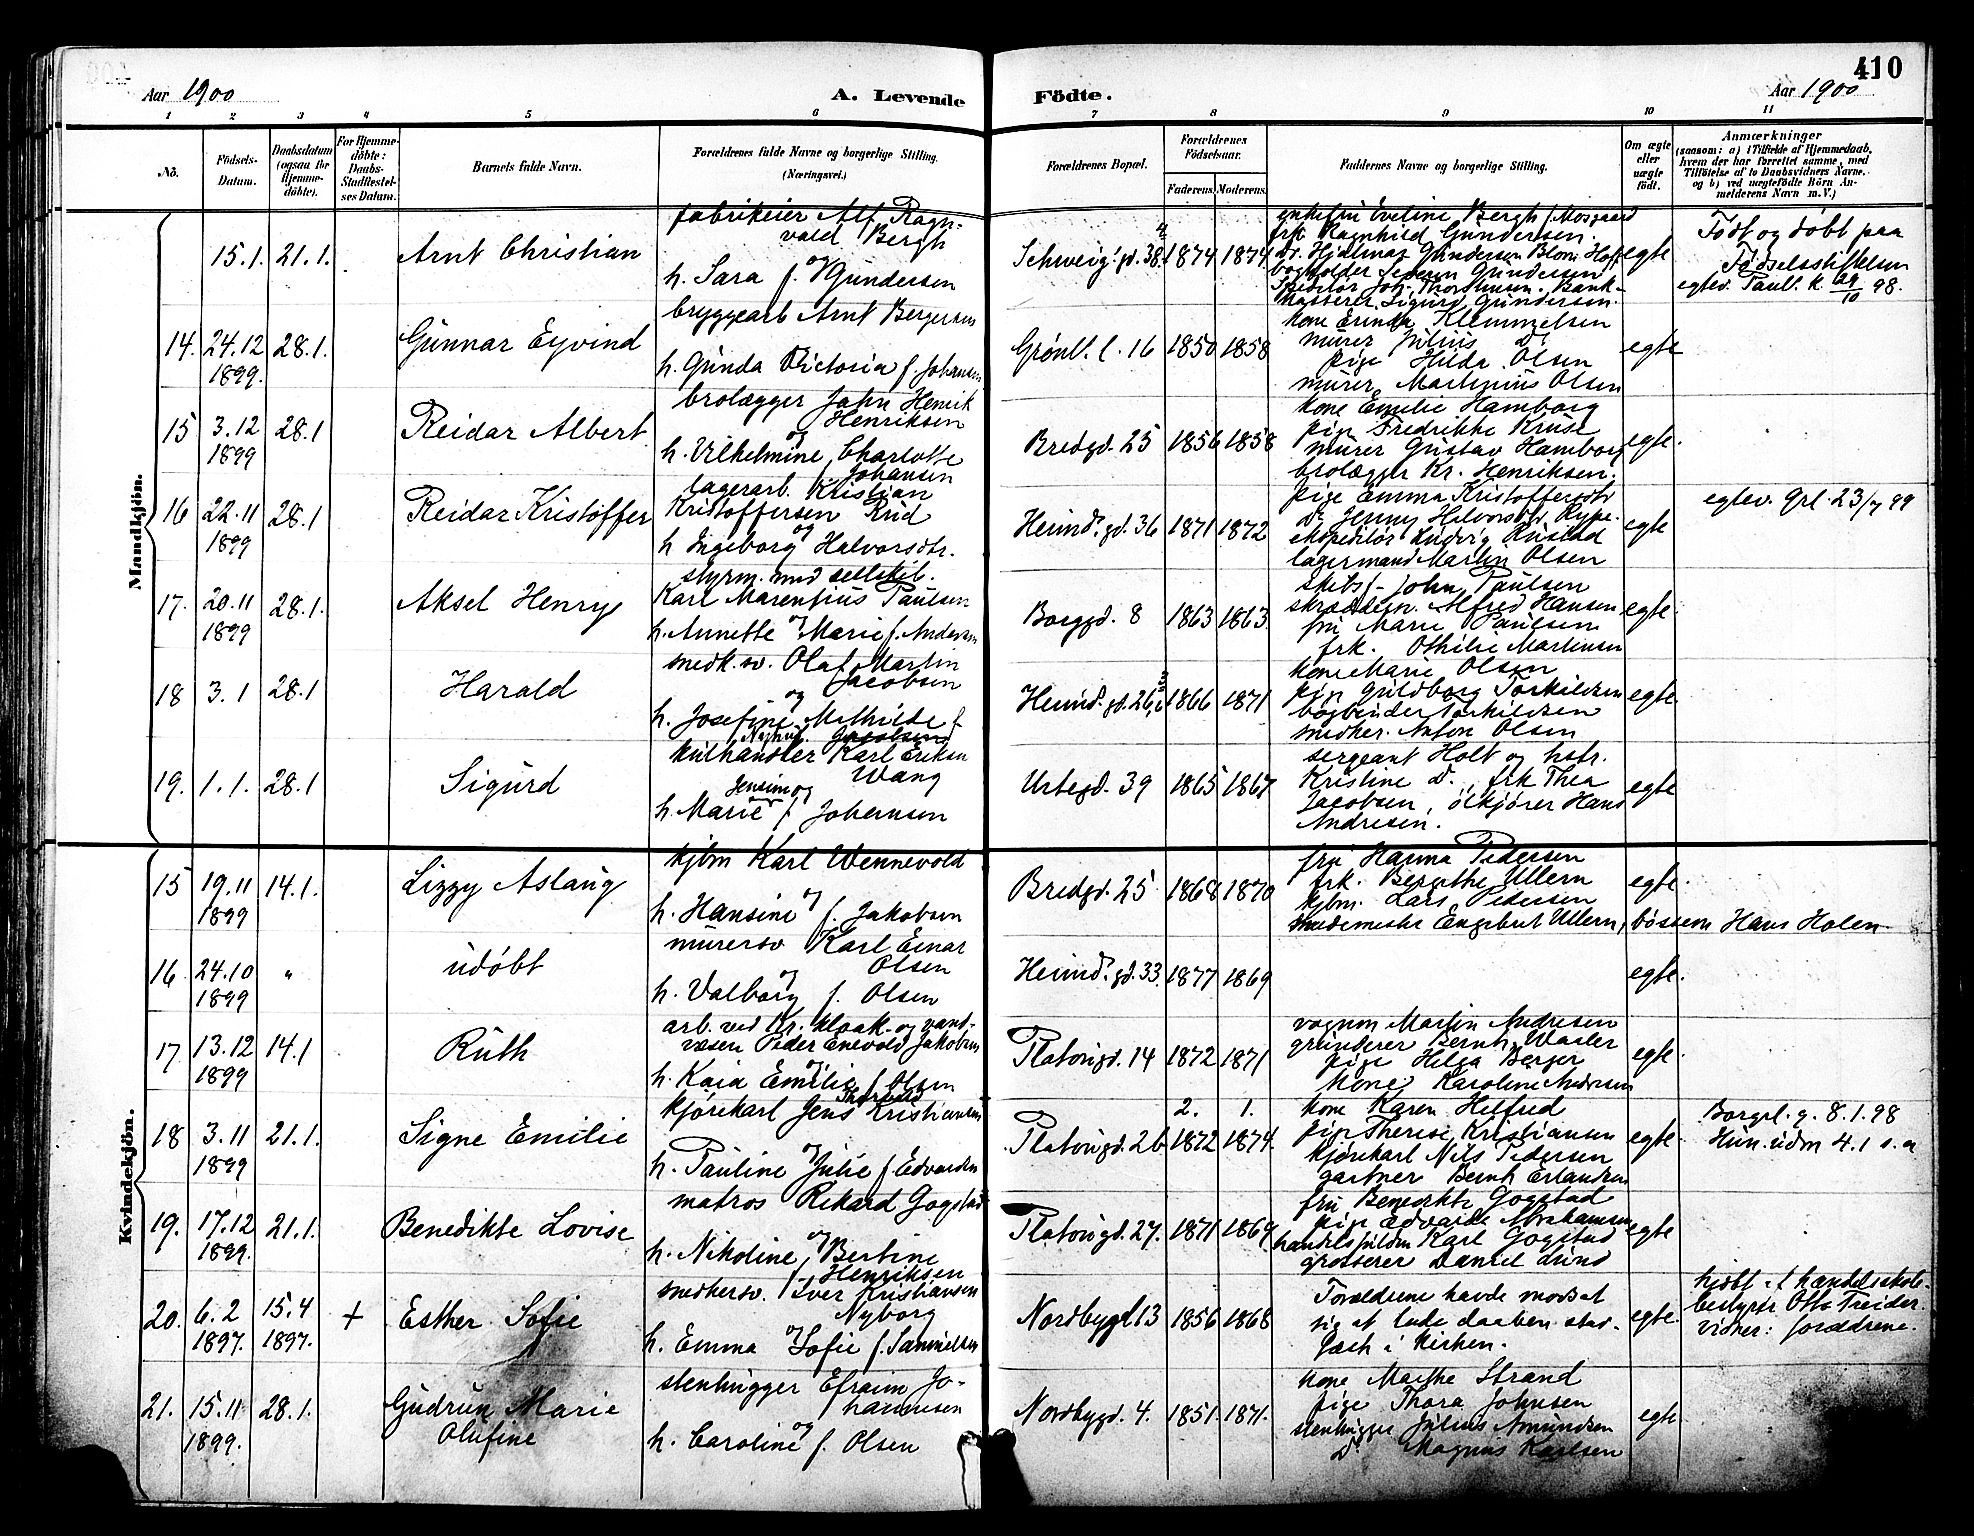 410
Aar 1900
A. Levende Födte.
Aar 1900
1 2 3 4 5 6 7 8 9 10 11
No.
Födsels-Datum.
Daabsdatum (ogsaa for Hjemme-döbte).
For Hjemme-döbte: Daabs-Stadfæstel-ses Datum.
Barnets fulde Navn.
Forældrenes fulde Navne og borgerlige Stilling.
(Næringsvei.)
Forældrenes Bopæl.
Forældrenes Födselsaar.
Faderens. Moderens.
Faddernes Navne og borgerlige Stilling.
Om ægte eller uægte födt.
Anmærkninger
(saasom: a) i Tilfælde af Hjemmedaab,
hvem der har forrettet samme, med
Tilföielse af to Daabsvidners Navne,
og b) ved uægtefödte Börn An-
melderens Navn m. V.)
Mandkjön.
15.1. 21.1. Arnt Christian
fabrikeier Alf Ragn-
vald Bergh
og
h. Sara f. Gundersen
Schweig. gd. 38. 1874 1874
enkefru Eveline Bergh f. Mosgaard
frk. Ragnhild Gundersen.
Dr. Hjalmar Gundersen Blom Hoff
bogholder Severin Gundersen
Joh. Thorstensen. Bank-
kasserer Sigurd Gundersen.
egte
Födt og döbt paa
Födselsstiftelsen
egtev. Paul. k. 29/10 98.
14. 24.12 1899. 28.1. Gunnar Eyvind
bryggearb Arnt Bergersen
h. Gunda Victoria f. Johansen
Grönl. l. 16 1850 1858
kone Erinda Klemmetsen
murer Julius D
pige Hilda Olsen
murer Martinius Olsen
egte
15 3.12 1899 28.1 Reidar Albert
brolægger John Henrik
Henriksen
og
h. Vilhelmine Charlotte
f. Johansen
Bredgd. 25 1856 1858
kone Emilie Hamborg
pige Fredrikke Kruse
murer Gustav Hamborg
brolægger Kr. Henriksen.
egte.
16 22.11 1899 28.1 Reidar Kristoffer
lagerarb. Kristian
Kristoffersen Rud
og
h Ingeborg Halvorsdtr.
Heimd. gd. 36 1871 1872
pige Emma Kristoffersdtr
D Jenny Halvorsdtr Rype.
ekspeditör Ludvig Rustad
lagermand Martin Olsen
egte
egtev. Grl. 23/7 99
17. 20.11 1899 28.1. Aksel Henry
styrm. med selskib.
Karl Marentius Paulsen
og
h. Annette Marie f. Andersen
Borggd. 8 1863 1863.
skibsf. John Paulsen
skrædderm. Alfred Hansen
fru Marie Paulsen
frk. Othilie Martinsen
egte.
18 3.1 28.1 Harald
snedk. sv. Olaf Martin
Jacobsen
og
h. Josefine Mathilde f.
Jacobsen
Heimd. gd. 26 1866 1871
kone Marie Olsen
pige Guldborg Torkildsen
bogbinder Torkildsen
snedker. Anton Olsen
egte.
19. 1.1. 28.1 Sigurd
kulhandler Karl Eriksen
Wang
Jensine og
h. Marie f. Johansen
Urtegd. 39 1865 1867
sergeant Holt og hstr.
Kristine D., frk Thea
Jacobsen, ölkjörer Hans
Andresen.
egte
Kvindekjön.
15 19.11 1899 14.1. Lizzy Aslaug
kjbm Karl Wennevold
og
h. Hansine f. Jakobsen
Bredgd. 25 1868 1870
fru Hanna Pedersen
frk. Bergithe Ullern
kjbm. Lars Pedersen
smedemester Engebret Ullern, bössem Hans Holen
egte.
16. 24.10 1899 " udöbt
murersv Karl Einar
Olsen
og
h. Valborg f. Olsen
Heimd. gd. 33. 1877 1869
egte.
17 13.12 1899 14.1 Ruth
arb. ved Kr. kloak- og vand-
væsen Peder Enevold Jakobsen
h. Kaia Emilie f. Olsen
Platougd. 14 1872 1871
vognm Martin Andresen
grunderer Bernh. Waaler
pige Helga Berger
kone Karoline Andresen
egte.
18 3.11 1899 21.1. Signe Emilie
kjörekarl Jens Kristiansen
og
h. Pauline Julie f. Edvardsen
Platougd. 26 2. 1872 1. 1874.
kone Karen Hilfred
pige Therese Kristiansen
kjörekarl Nils Pedersen
gartner Bernt Erlandsen
egte
Borgrl. g. 8.1.98
Hun. udm 4.1 s. a
19. 17.12 1899. 21.1. Benedikte Lovise
matros Rikard Gogstad
og
h. Nikoline Bertine
f. Henriksen
Platougd. 27. 1871 1869
fru Benedikte Gogstad
pige Edvarda Abrahamsen
handelsfuldm Karl Gogstad
grosserer Daniel Lund
egte
20. 6.2 1897. 15.4 1897. + Esther Sofie
snedkersv. Iver Kristiansen
Nyborg
og
h. Emma Sofie f. Samuelsen
Nordbygd 13 1856 1868
Forældrene havde modsat
sig at lade daaben stad-
fæst i kirken.
egte.
hjdbt. af handelsskole-
bestyrer Otto Treider.
vidner: forældrene.
21. 15.11 1899. 28.1. Gudrun Marie
Olufine
stenhugger Efraim Jo-
hannesen
og
h. Caroline f. Olsen
Nordbygd. 4. 1851. 1871.
kone Marthe Strand
pige Thora Johnsen
stenhugger Julius Amundsen
D Magnus Karlsen
egte.